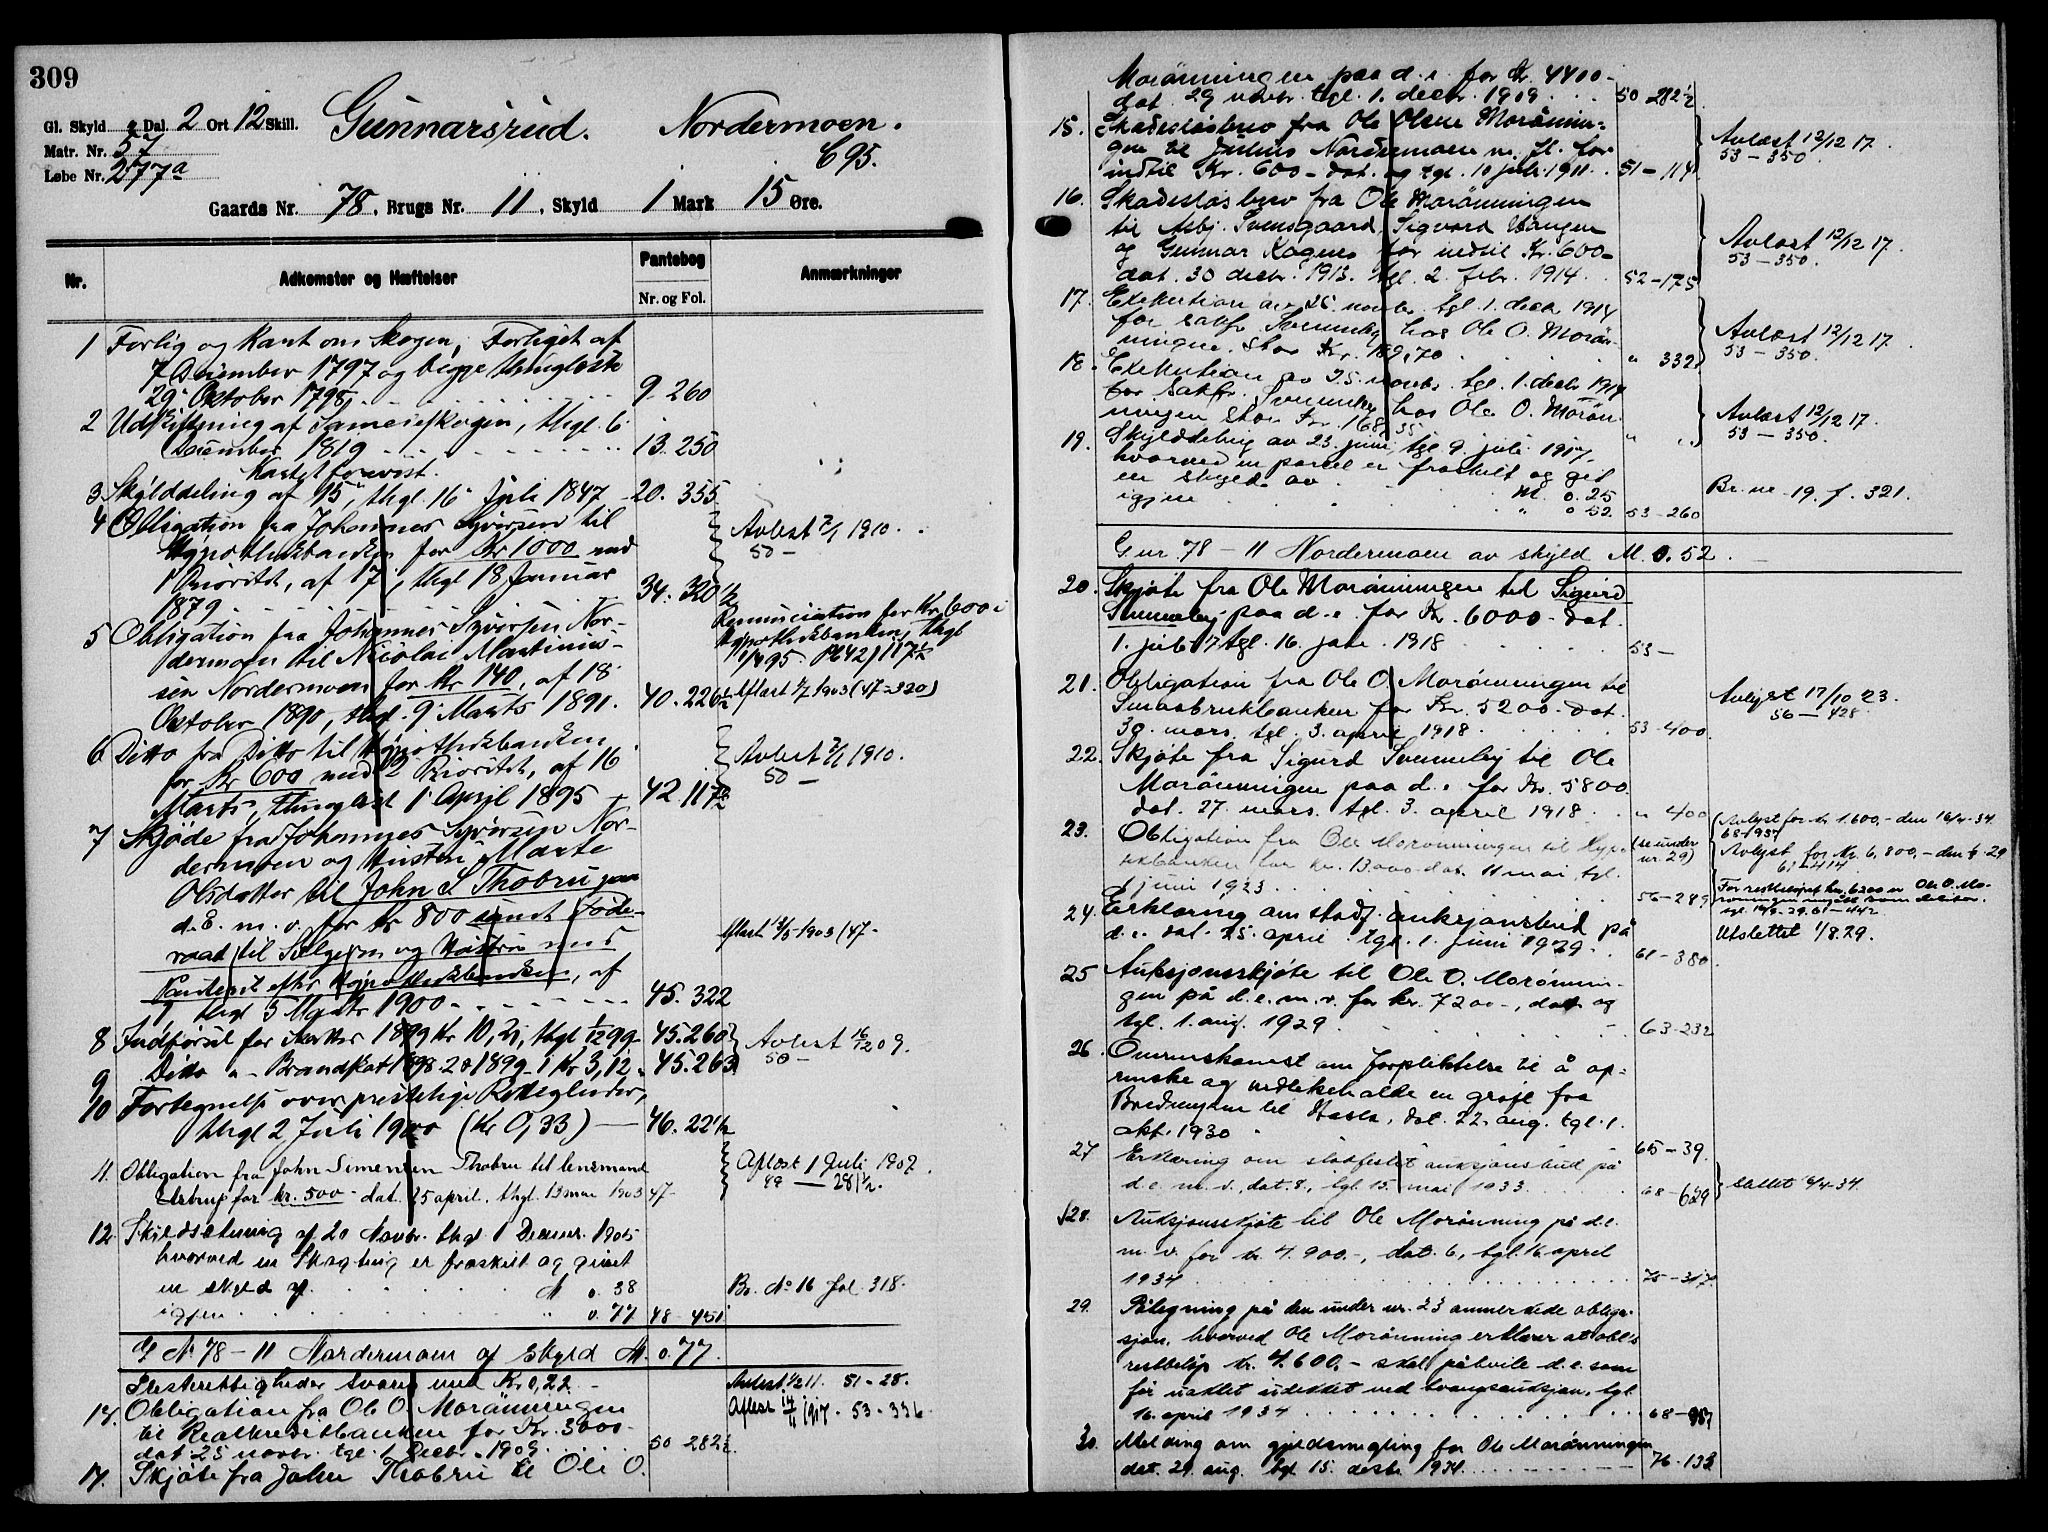 309
Gl. Skyld - Dal. 2 Ort 12 Skill.
Matr. Nr. 57
Løbe Nr. 277a
Gunnarsrud. Nordermoen.
695.
Gaards Nr. 78, Brugs Nr. 11, Skyld 1 Mark 15 Øre.
Nr. Adkomster og Hæftelser Pantebog Anmærkninger
Nr. og Fol.
1 Forlig og Kart om Skogen, Forliget af
7 December 1797 og begge thinglæste
29 Oktober 1798 9 260
2 Udskiftning af Sameieskogen, thgl. 6
December 1819 13. 250
Kartet forevist.
3 Skylddeling af 15, thgl. 16 Juli 1847 20. 355
4 Obligation fra Johannes Syversen til Avlest 7/1 1910.
Hypothekbanken for Kr 1000 med 50 —
1 Prioritet, af 17, thgl 18 Januar
1879 34. 320 1/2
Renunciation for Kr 600 i
Hypothekbanken, thgl
1/4 95. P642/117 1/2
5 Obligation fra Johannes Syversen Nor-
dermoen til Nicolai Martinius-
sen Nordermoen for Kr 140, af 18
Oktober 1890, thgl. 9 Marts 1891. 40. 226 1/2 Aflæst 1/7 1903 (47-320)
6 Ditto fra Ditto til Hypothekbanken
for Kr 600 med 2 Prioritet, af 16 Avlest 7/1 1910.
Marts, thinglæst 1 April 1895 42 117 1/2 50 —
7 Skjøde fra Johannes Syversen Nor-
dermoen og Hustru Marte
Olsdatter til John S Thobru paa
d. E. m. v. for Kr 800 samt Føde-
raad til Sælgeren og Hustru med
Panteret efter Hypothekbanken, af
thgl 5 Marts 1900 45. 322
Aflæst 13/5 1903 (47-
8 Indførsel for Skatter 1899 Kr 10,21, thgl 1/12 99 45. 260 Avlest 16/12 09.
9 Ditto " Brandkont 1898 2 og 1899 1 Kr 3,12 " 45. 263 50 —
10 Fortegnelse over prestelige Rettigheder,
thgl 2 Juli 1900 (Kr 0,33) — 46. 22 1/2
11. Obligation fra John Simensen Thobru til lensmand Aflæst 1 Juli 1909.
Astrup for kr. 500 - dat. 25 april. thgl. 13 mai 1903 47- 49 — 281 1/2.
12. Skyldsætning af 20 Novbr. thgl 1 Decemr. 1905
hvorved en Skogteig er fraskilt og givet
en skyld af M 0.38 Br. No 16 fol 318.
igjen " 0.77 48 - 451
G No 78 - 11 Nordermoen af skyld M. 0.77.
Presterettigheder svares med Kr 0,22 Avlest 1/2 11. 51 - 28.
14. Obligation fra Ole O. Morønningen Aflæst 14/11 1917. 53-336
til Realkreditbanken for Kr. 3000-
dat. 25 novbr. tgl. 1 decbr. 1909 50 282 1/2
14. Skjøte fra John Thobru til Ole O.
Morønningen paa d. e. for Kr. 4400-
dat. 29 novbr. tgl. 1. decbr. 1909 50 282 1/2
15. Skadesløsbrev fra Ole Olsen Morønnin-
gen til Julius Nordermoen m. fl. for Avlæst 12/12 17.
indtil Kr. 600 - dat. og tgl. 10 juli 1911. 51 - 114 53 — 350.
16. Skadesløsbrev fra Ole Morønningen
til Asbj. Svensgaard, Sigvard Wangen Avlæst 12/12 17.
og Gunnar Kognes for indtil Kr. 600- 53 — 350.
dat. 30 decbr. 1913. tgl. 2. febr. 1914. 52 - 175
17. Exekution av 25 novbr. tgl. 1. decbr 1914
for sakfr. Svenneby hos Ole O. Morøn- Avlæst 12/12 17.
ningen. Stor Kr. 189,70 " 332 53 — 350.
18. Exekution av 25. novbr. tgl. 1. decbr 1914
for sakfr. Svenneby hos Ole O. Morøn- Avlæst 12/12 17.
ningen Stor Kr. 168,35 " " 53 — 350.
19. Skylddeling av 23. juni, tgl. 9. juli 1917
hvorved en parcel er fraskilt og git
en skyld av M. 0.25 Br. nr. 19. f. 321.
igjen " 0 52 53 - 260
G. nr. 78 — 11 Nordermoen av skyld M. 0.52.
20. Skjøte fra Ole Morønningen til Sigurd
Svenneby paa d. e. for Kr. 6000 - dat.
1. juli 17 tgl. 16. jan. 1918 53 —
21. Obligation fra Ole O. Morønningen til Avlyst 17/10 23.
Smaabrukbanken for Kr. 5200. dat. 56 — 428.
30. mars. tgl. 3. april 1918 53 - 400
22. Skjøte fra Sigurd Svenneby til Ole
Morønningen paa d. e for Kr. 5800
dat. 27. mars. tgl. 3. april 1918 " 400
23. Obligation fra Ole Morønningen til Hypo- (se under Avlyst for kr. 1.600,- den 16/4-34
tekbanken for kr. 13.000 dat. 11 mai, tgl. nr. 29) 68-957
1 juni 1923 56 - 289 Avlyst for kr. 6.800,- den 29
61-414
For restbeløpet kr. 6200 er Ole O. Mo-
rønningen som debitor.
24. Erklæring om stadf. auksjonsbud på
d. e. dat. 25. april tgl. 1. juni 1929 61 - 380 Utslettet 1/8.29.
25 Auksjonsskjøte til Ole O. Morønnin-
gen på d. e. m. v. for kr. 7200-, dat. og
tgl. 1. aug. 1929 63-232
26. Overenskomst om forpliktelse til å op-
renske og vedlikeholde en grøft fra
til Hasla, dat. 22. aug. tgl. 1.
okt. 1930 65-39.
27 Erklæring om stadfestet auksjonsbud på
d. e. m. v., dat. 8., tgl. 15. mai 1933 68-629 slettet 16/4-34
28. Auksjonsskjøte til Ole Morønning på d. e.
m. v. for kr. 4.900.-, dat. 6, tgl. 16 april
1934 75-317
29. Påtegning på den under nr. 23 anmerkede obliga-
sjon, hvorved Ole Morønning erklærer at obl's
restbeløp kr. 4.600,- skal påhvile d. e. som
før uaktet udekket ved tvangsauksjon, tgl.
16. april 1934 68-957
30. Melding om gjeldsmegling for Ole Morønningen
dat. 29. aug. tgl 15. desbr 1934 76-133